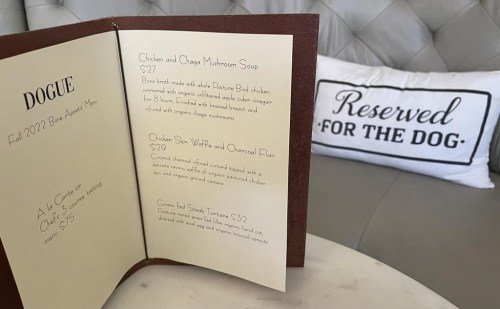 DOGUE
Fall 2022 Bone Appetit Menu
A la Carte or
Chef's 3 course tasting
menu $75
Chicken and Chaga Mushroom Soup
$27
Bone broth made with whole Pasture Bird chicken,
simmered with organic unfiltered apple cider vinegar
for 8 hours. Finished with braised breast, and
infused with organic chaga mushrooms
Chicken Skin Waffle and Charcoal Flan
$29
Coconut charcoal infused custard topped with a
delicate savory waffle of organic pastured chicken
skin and organic ground
Grass Fed Steak Tartare $32
Pasture raised grass fed filet, organic, hand cut,
with quail egg and organic broccoli sprouts
Reserved
·FOR THE DOG·